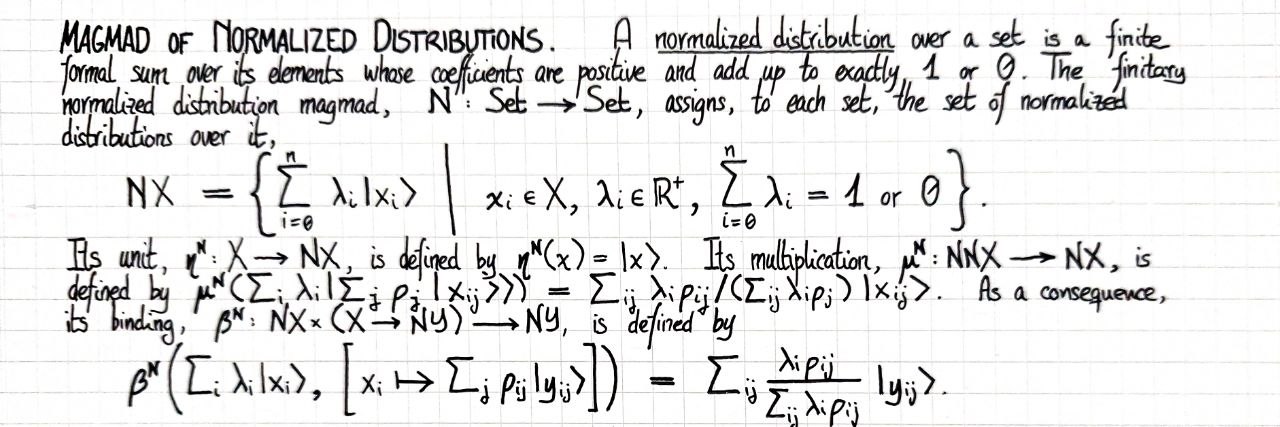 MAGMAD OF NORMALIZED DISTRIBUTIONS. A normalized distribution over a set is a finite
formal sum over its elements whose coefficients are positive and add up to exactly, 1 or 0. The finitary
normalized distribution magmad, N : Set → Set, assigns, to each set, the set of normalized
distributions over it,
NX = { ∑_{i=0}^{n} λᵢ|xᵢ⟩ | xᵢ ∈ X, λᵢ ∈ ℝ⁺, ∑_{i=0}^{n} λᵢ = 1 or 0 }.
Its unit, ηᴺ : X → NX, is defined by ηᴺ(x) = |x⟩. Its multiplication, μᴺ : NNX → NX, is
defined by μᴺ(∑ᵢ λᵢ|∑ⱼ ρⱼ|xᵢⱼ⟩⟩) = ∑ᵢⱼ λᵢρᵢⱼ/(∑ᵢⱼ λᵢρⱼ)|xᵢⱼ⟩. As a consequence,
its binding, βᴺ : NX × (X → NY) → NY, is defined by
βᴺ(∑ᵢ λᵢ|xᵢ⟩, [xᵢ ↦ ∑ⱼ ρᵢⱼ|yᵢⱼ⟩]) = ∑ᵢⱼ λᵢρᵢⱼ / ∑ᵢⱼ λᵢρᵢⱼ |yᵢⱼ⟩.